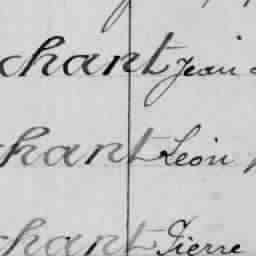 chant Jean
chant Léon
chant Pierre